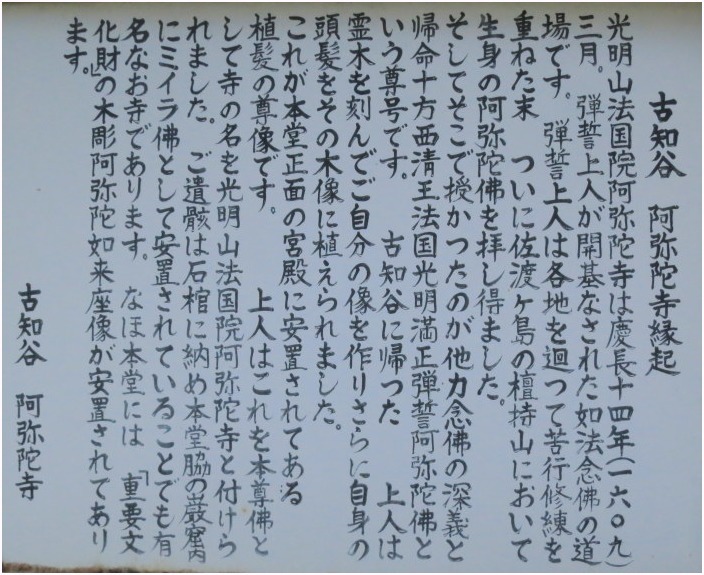 古知谷　阿弥陀寺縁起
光明山法国院阿弥陀寺は慶長十四年(一六〇九)
三月。弾誓上人が開基なされた如法念佛の道
場です。弾誓上人は各地を廻つて苦行修練を
重ねた末　ついに佐渡ヶ島の檀持山において
生身の阿弥陀佛を拝し得ました。
そしてそこで授かつたのが他力念佛の深義と
帰命十方西清王法国光明満正弾誓阿弥陀佛と
いう尊号です。　古知谷に帰つた　上人は
霊木を刻んでご自分の像を作りさらに自身の
頭髪をその木像に植えられました。
これが本堂正面の宮殿に安置されてある
植髪の尊像です。　上人はこれを本尊佛と
して寺の名を光明山法国院阿弥陀寺と付けら
れました。ご遺骸は石棺に納め本堂脇の巌窟内
にミイラ佛として安置されていることでも有
名なお寺であります。なほ本堂には「重要文
化財」の木彫阿弥陀如来座像が安置されてあり
ます。
古知谷　阿弥陀寺